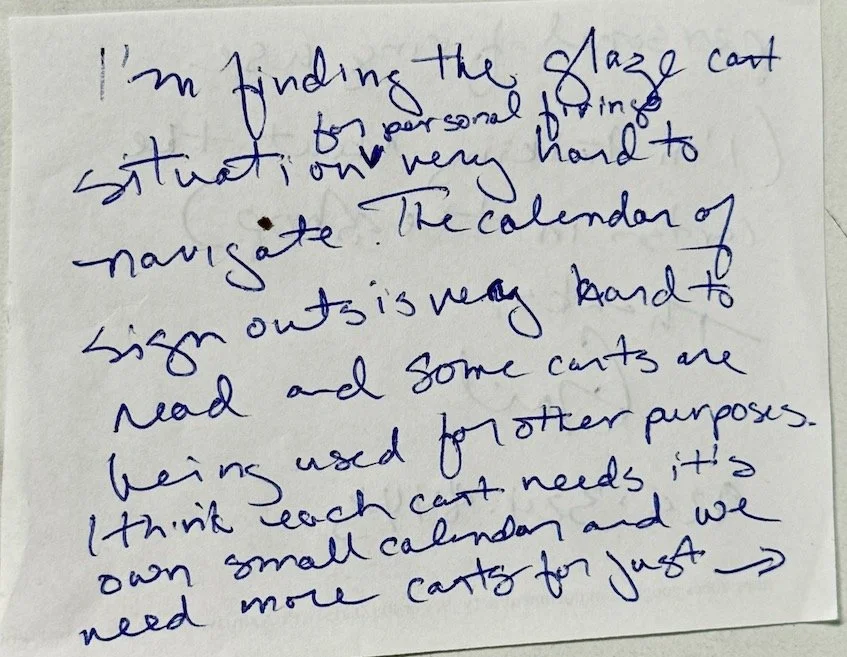 I'm finding the glaze cart
for personal firings
situation very hard to
navigate. The calendar of
sign outs is very hard to
read and some carts are
being used for other purposes.
I think each cart needs it's
own small calendar and we
need more carts for just →